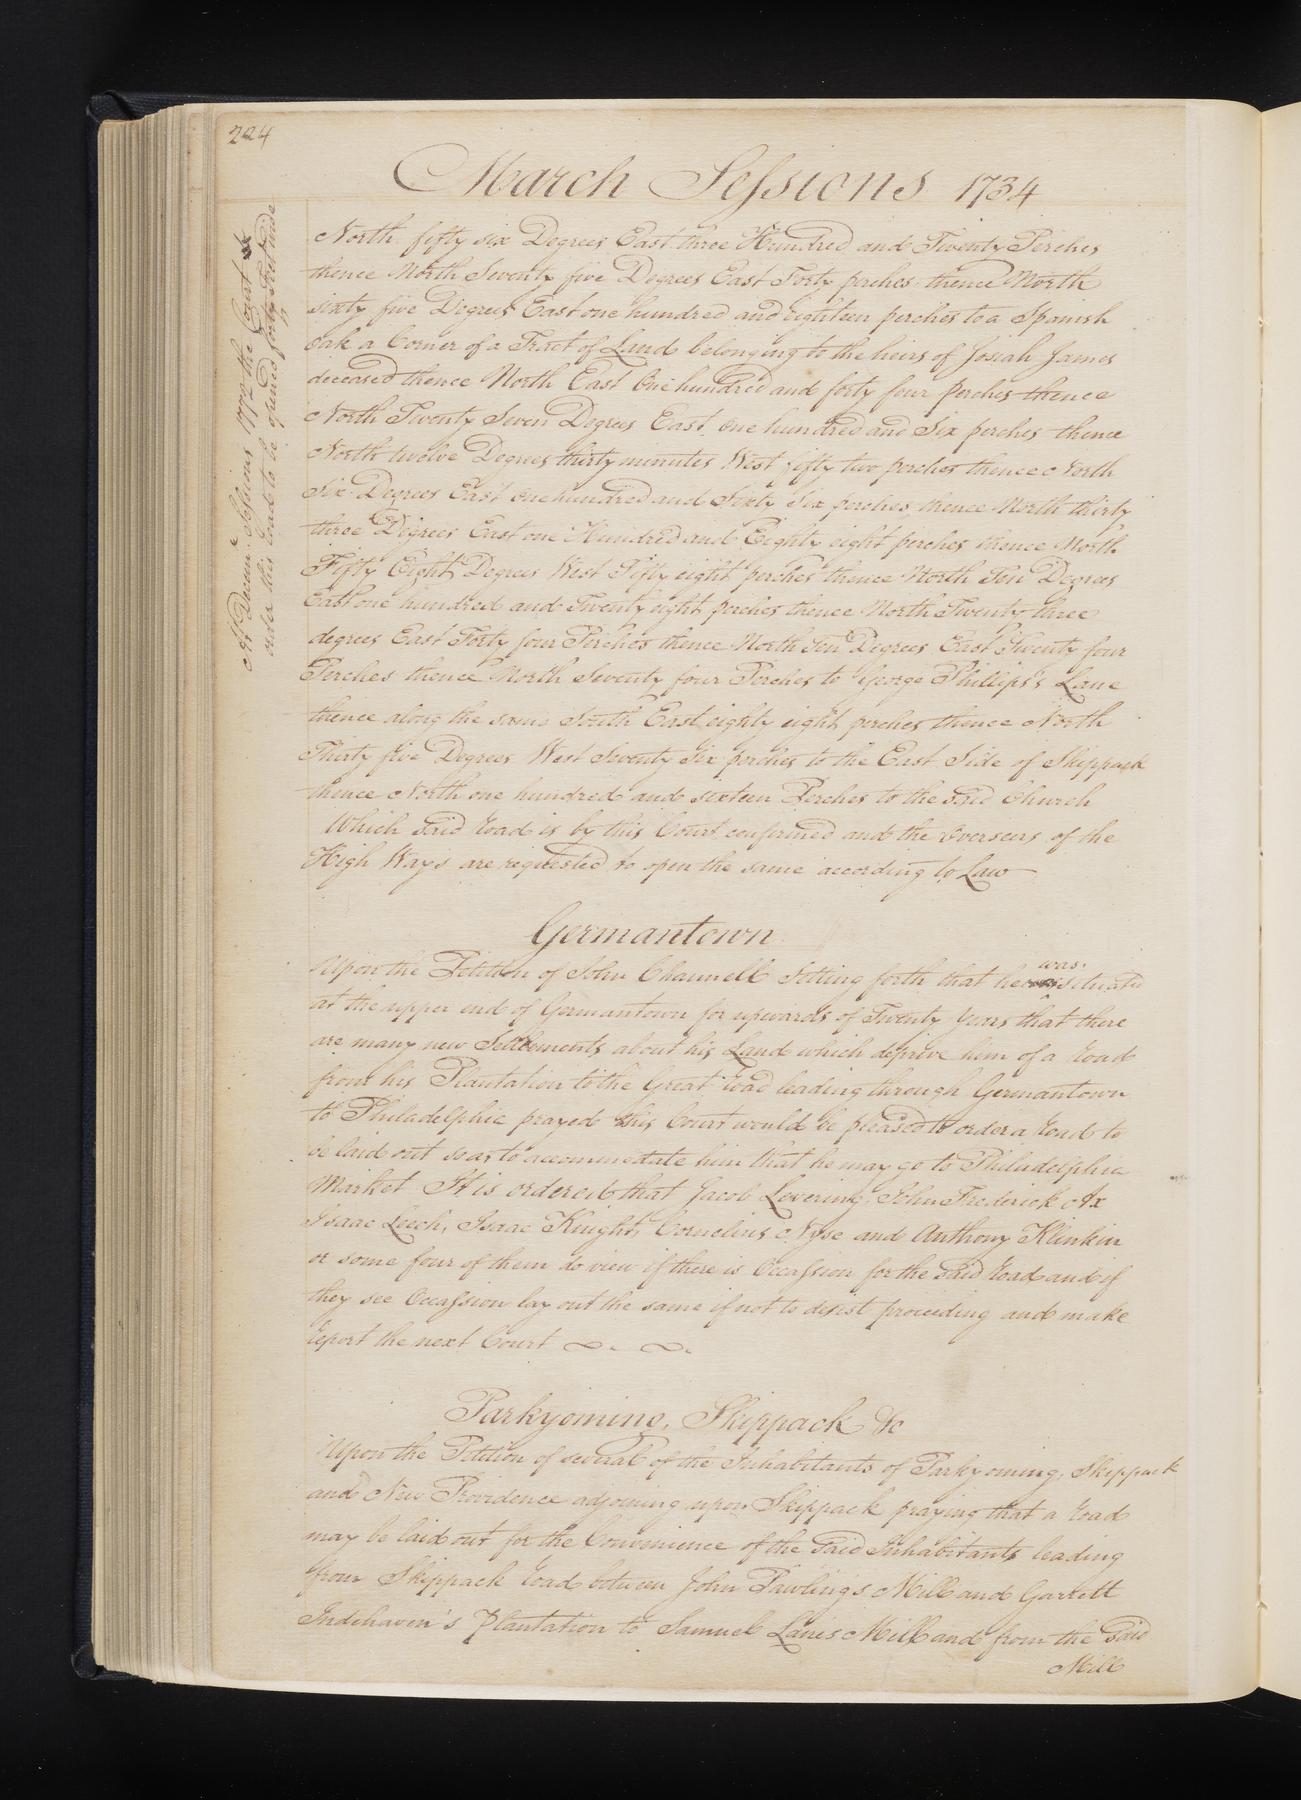 224
March Sessions 1734
North fifty six Degrees East three Hundred and Twenty Perches
thence North Seventy five Degrees East Forty perches thence North
sixty five Degrees East one hundred and eighteen perches to a Spanish
oak a Corner of a Tract of Land belonging to the heirs of Josiah James
deceased thence North East One hundred and forty four perches thence
North Twenty Seven Degrees East one hundred and Six perches thence
North twelve Degrees thirty minutes West fifty two perches thence North
Six Degrees East one hundred and Sixty Six perches thence North thirty
three Degrees East one Hundred and Eighty eight perches thence North
Fifty Eight Degrees West Fifty eight perches thence North Ten Degrees
East one hundred and Twenty eight perches thence North Twenty three
degrees East Forty four Perches thence North Ten Degrees East Twenty four
Perches thence North Seventy four Perches to George Phillips's Lane
thence along the same South East eighty eight perches thence North
Thirty five Degrees West Seventy Six perches to the East Side of Skippack
thence North one hundred and sixteen Perches to the said Church
Which said road is by this Court confirmed and the overseers of the
High Ways are requested to open the same according to Law
At Decem.r Sessions 1772 the Court
order this road to be opened forty Feet wide
Germantown
Upon the Petition of John Channell Setting forth that he was situated
at the upper end of Germantown for upwards of Twenty Years that there
are many new Settlements about his Land which deprive him of a road
from his Plantation to the Great road leading through Germantown
to Philadelphia prayed this Court would be pleased to order a road to
be laid out so as to accommodate him that he may go to Philadelphia
Market It is ordered that Jacob Levering, John Frederick Ax
Isaac Leech, Isaac Knight, Cornelius Nyse and Anthony Klinkin
or some four of them do view if there is Occassion for the said road and if
they see Occassion lay out the same if not to desist proceeding and make
report the next Court
Parkyoming, Skippack &c
Upon the Petition of several of the Inhabitants of Parkyoming, Skippack
and New Providence adjoining upon Skippack praying that a road
may be laid out for the Convenience of the said Inhabitants leading
from Skippack road between John Pawlings Mill and Garrett
Indehaven's Plantation to Samuel Lanes Mill and from the said
Mill